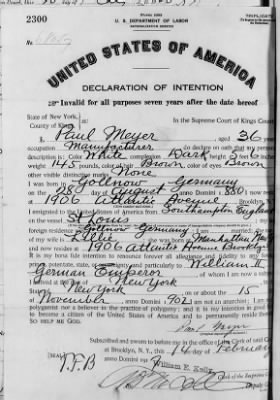 2300
U. S. DEPARTMENT OF LABOR
NATURALIZATION SERVICE
TRIPLICATE
UNITED STATES OF AMERICA
DECLARATION OF INTENTION
Invalid for all purposes seven years after the date hereof
State of New York,
County of Kings
In the Supreme Court of Kings County
I, Paul Meyer, aged 36
occupation Manufacturer, do declare on oath that my personal
description is: Color White, complexion Dark, height 5 feet
weight 145 pounds, color of hair Brown, color of eyes Brown
other visible distinctive marks None
I was born in Gollnow Germany
on the 28 day of August, anno Domini 1 880; I now reside
at 1906 Atlantic Avenue, Brooklyn
I emigrated to the United States of America from Southampton England
on the vessel St Louis
foreign residence was Germany; I am married
of my wife is Lillie
and now resides at 1906 Atlantic Avenue Brooklyn
It is my bona fide intention to renounce forever all allegiance and fidelity to any foreign
prince, potentate, state, or sovereignty, and particularly to William II
German Emperor, of whom I am now a subject
I arrived at the port of New York
State of New York, on or about the 15
November, anno Domini 1 902; I am not an anarchist; I am not a
polygamist nor a believer in the practice of polygamy; and it is my intention in good faith
to become a citizen of the United States of America and to permanently reside therein:
SO HELP ME GOD.
Paul Meyer
Subscribed and sworn to before me in the office of the Clerk of said Court
at Brooklyn, N. Y., this 14 day of February
anno Domini
[SEAL]
William E. Kelly